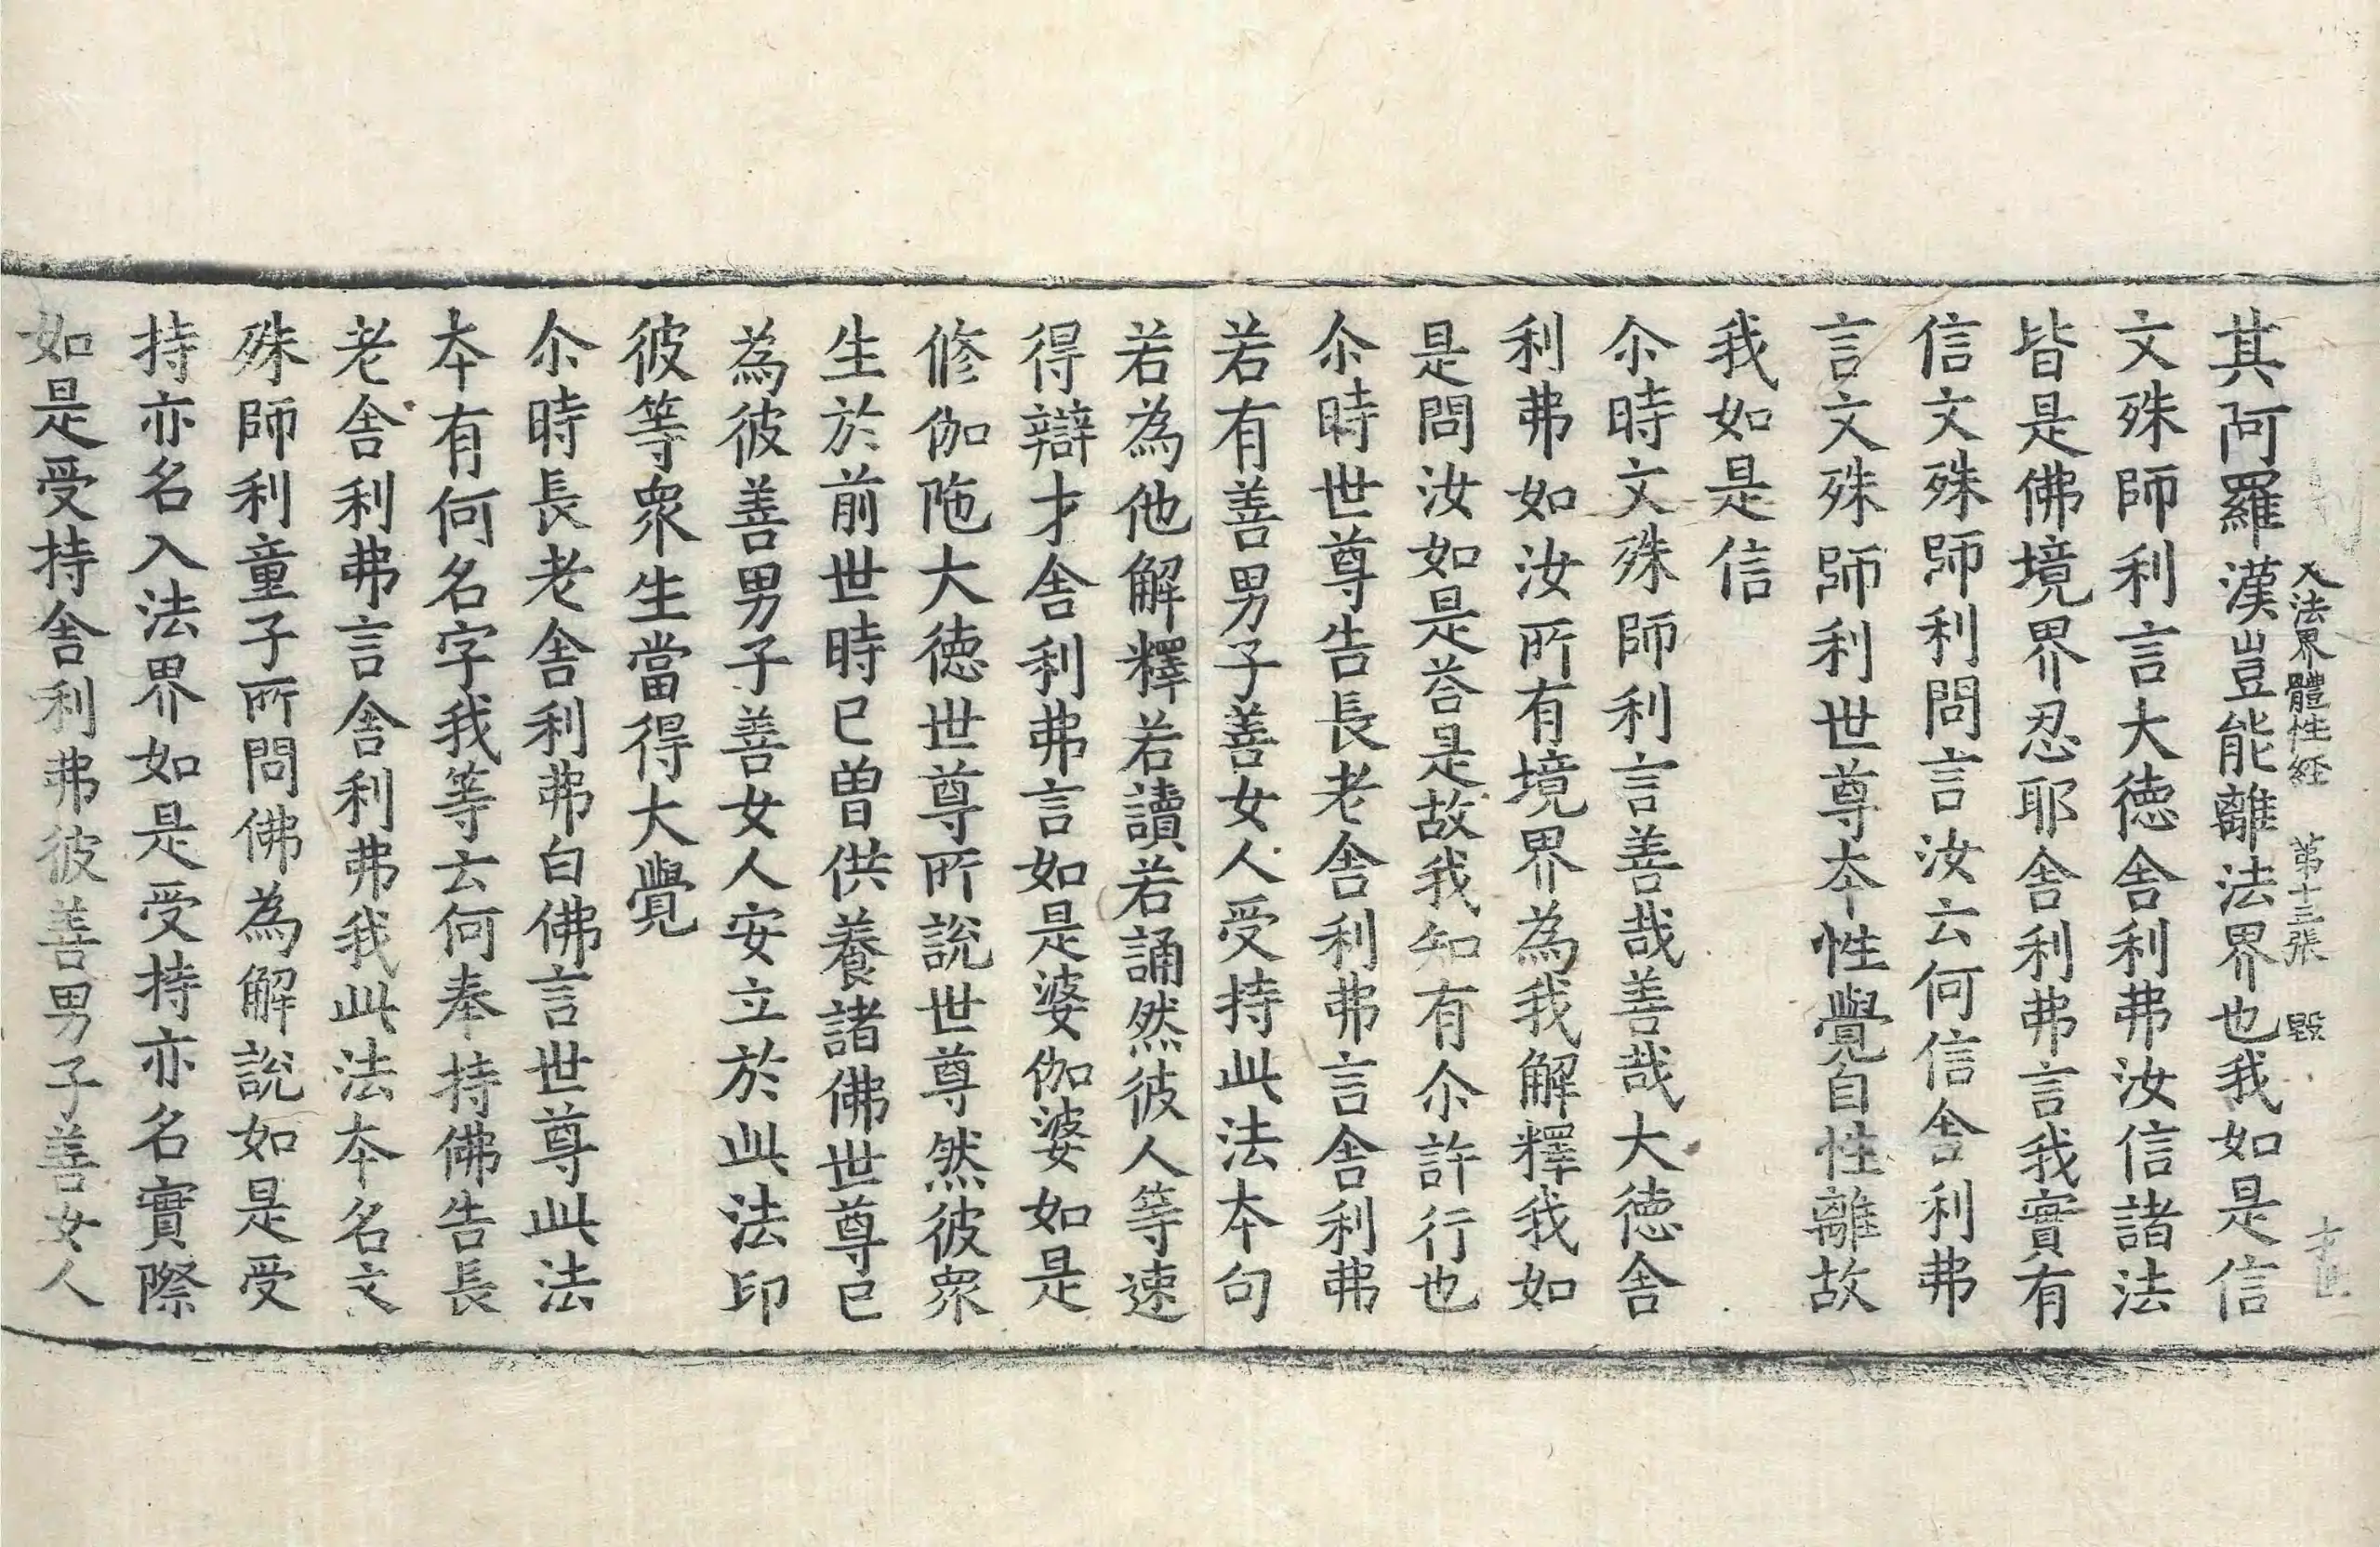 入法界體性経 第十三張 毀
其阿羅漢豈能離法界也我如是信
文殊師利言大徳舎利弗汝信諸法
皆是佛境界忍耶舎利弗言我實有
信文殊師利問言汝云何信舎利弗
言文殊師利世尊夲性覺自性離故
我如是信
尒時文殊師利言善哉善哉大徳舎
利弗如汝所有境界為我解釋我如
是問汝如是荅是故我知有尒許行也
尒時世尊告長老舎利弗言舎利弗
若有善男子善女人受持此法夲句
若為他解釋若讀若誦然彼人等速
得辯才舎利弗言如是婆伽婆如是
修伽陁大徳世尊所説世尊然彼眾
生於前世時已曽供養諸佛世尊已
為彼善男子善女人安立於此法印
彼等眾生當得大覺
尒時長老舎利弗白佛言世尊此法
夲有何名字我等云何奉持佛告長
老舎利弗言舎利弗我此法夲名文
殊師利童子所問佛為解説如是受
持亦名入法界如是受持亦名實際
如是受持舎利弗彼善男子善女人